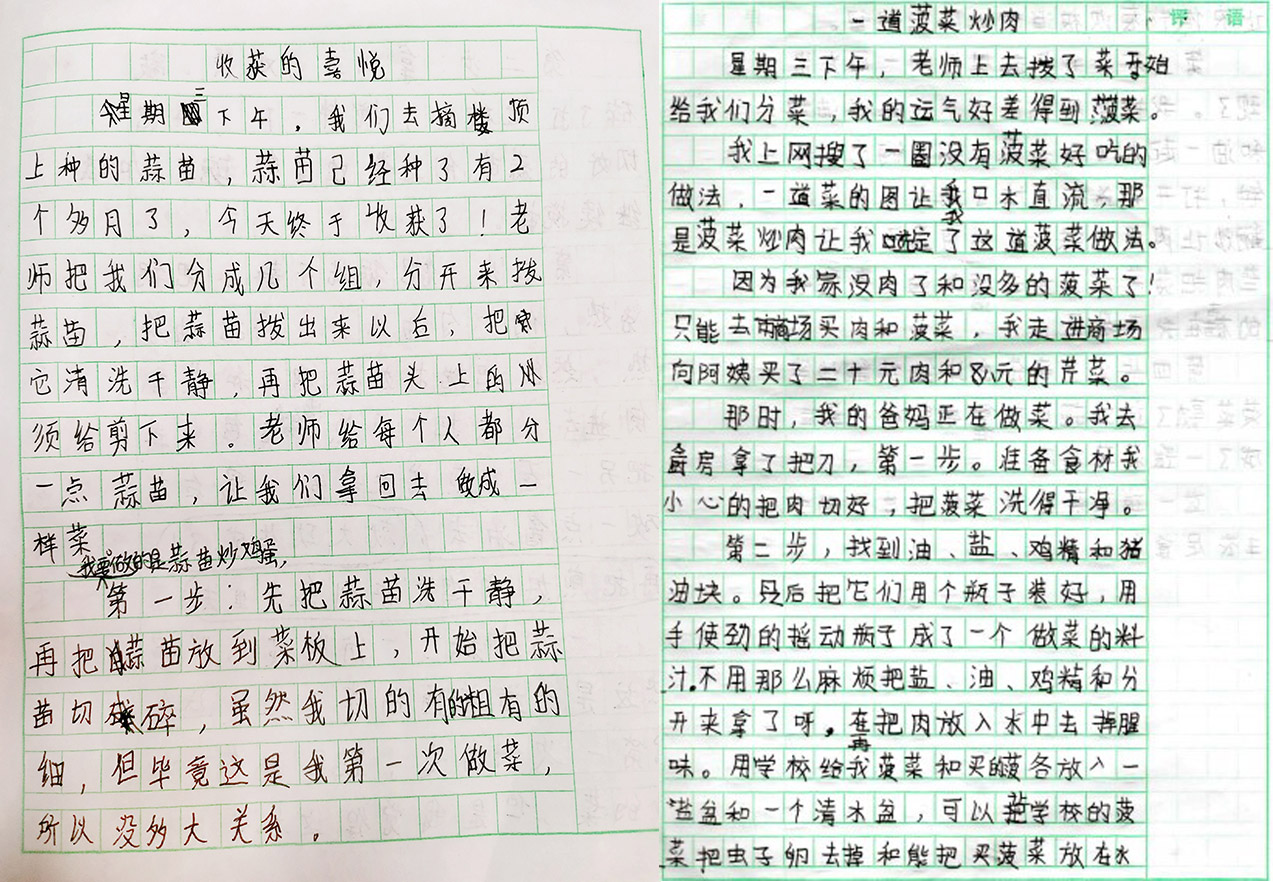 收获的喜悦
星期三下午，我们去摘楼顶
上种的蒜苗，蒜苗已经种了有2
个多月了，今天终于收获了！老
师把我们分成几个组，分开来拨
蒜苗，把蒜苗拨出来以后，把
它清洗干静，再把蒜苗头上的
须给剪下来。老师给每个人都分
一点蒜苗，让我们拿回去做成一
样菜
我要做的是蒜苗炒鸡蛋，
第一步：先把蒜苗洗干静，
再把蒜苗放到菜板上，开始把蒜
苗切碎，虽然我切的有的粗有的
细，但毕竟这是我第一次做菜，
所以没多大关系。
评语
一道菠菜炒肉
星期三下午，老师上去拨了菜开始
给我们分菜，我的运气好差得到菠菜。
我上网搜了一圈没有菠菜好吃的
做法，一道菜的图让我口木直流，那
是菠菜炒肉让我决定了这道菠菜做法。
因为我家没肉了和没多的菠菜了！
只能去商场买肉和菠菜，我走进商场
向阿姨买了二十元肉和8元的芹菜。
那时，我的爸妈正在做菜。我去
厨房拿了把刀，第一步。准备食材我
小心的把肉切好，把菠菜洗得干净。
第二步，找到油、盐、鸡精和猪
油块。然后把它们用个瓶子装好，用
手使劲的摇动瓶子成了一个做菜的料
汁。不用那么麻烦把盐、油、鸡精和分
开来拿了呀。再把肉放入水中去掉腥
味。用学校给我菠菜和买的菠各放入一
盐盆和一个清水盆，可以把学校的菠
菜把虫子卵去掉和能把买菠菜放在水